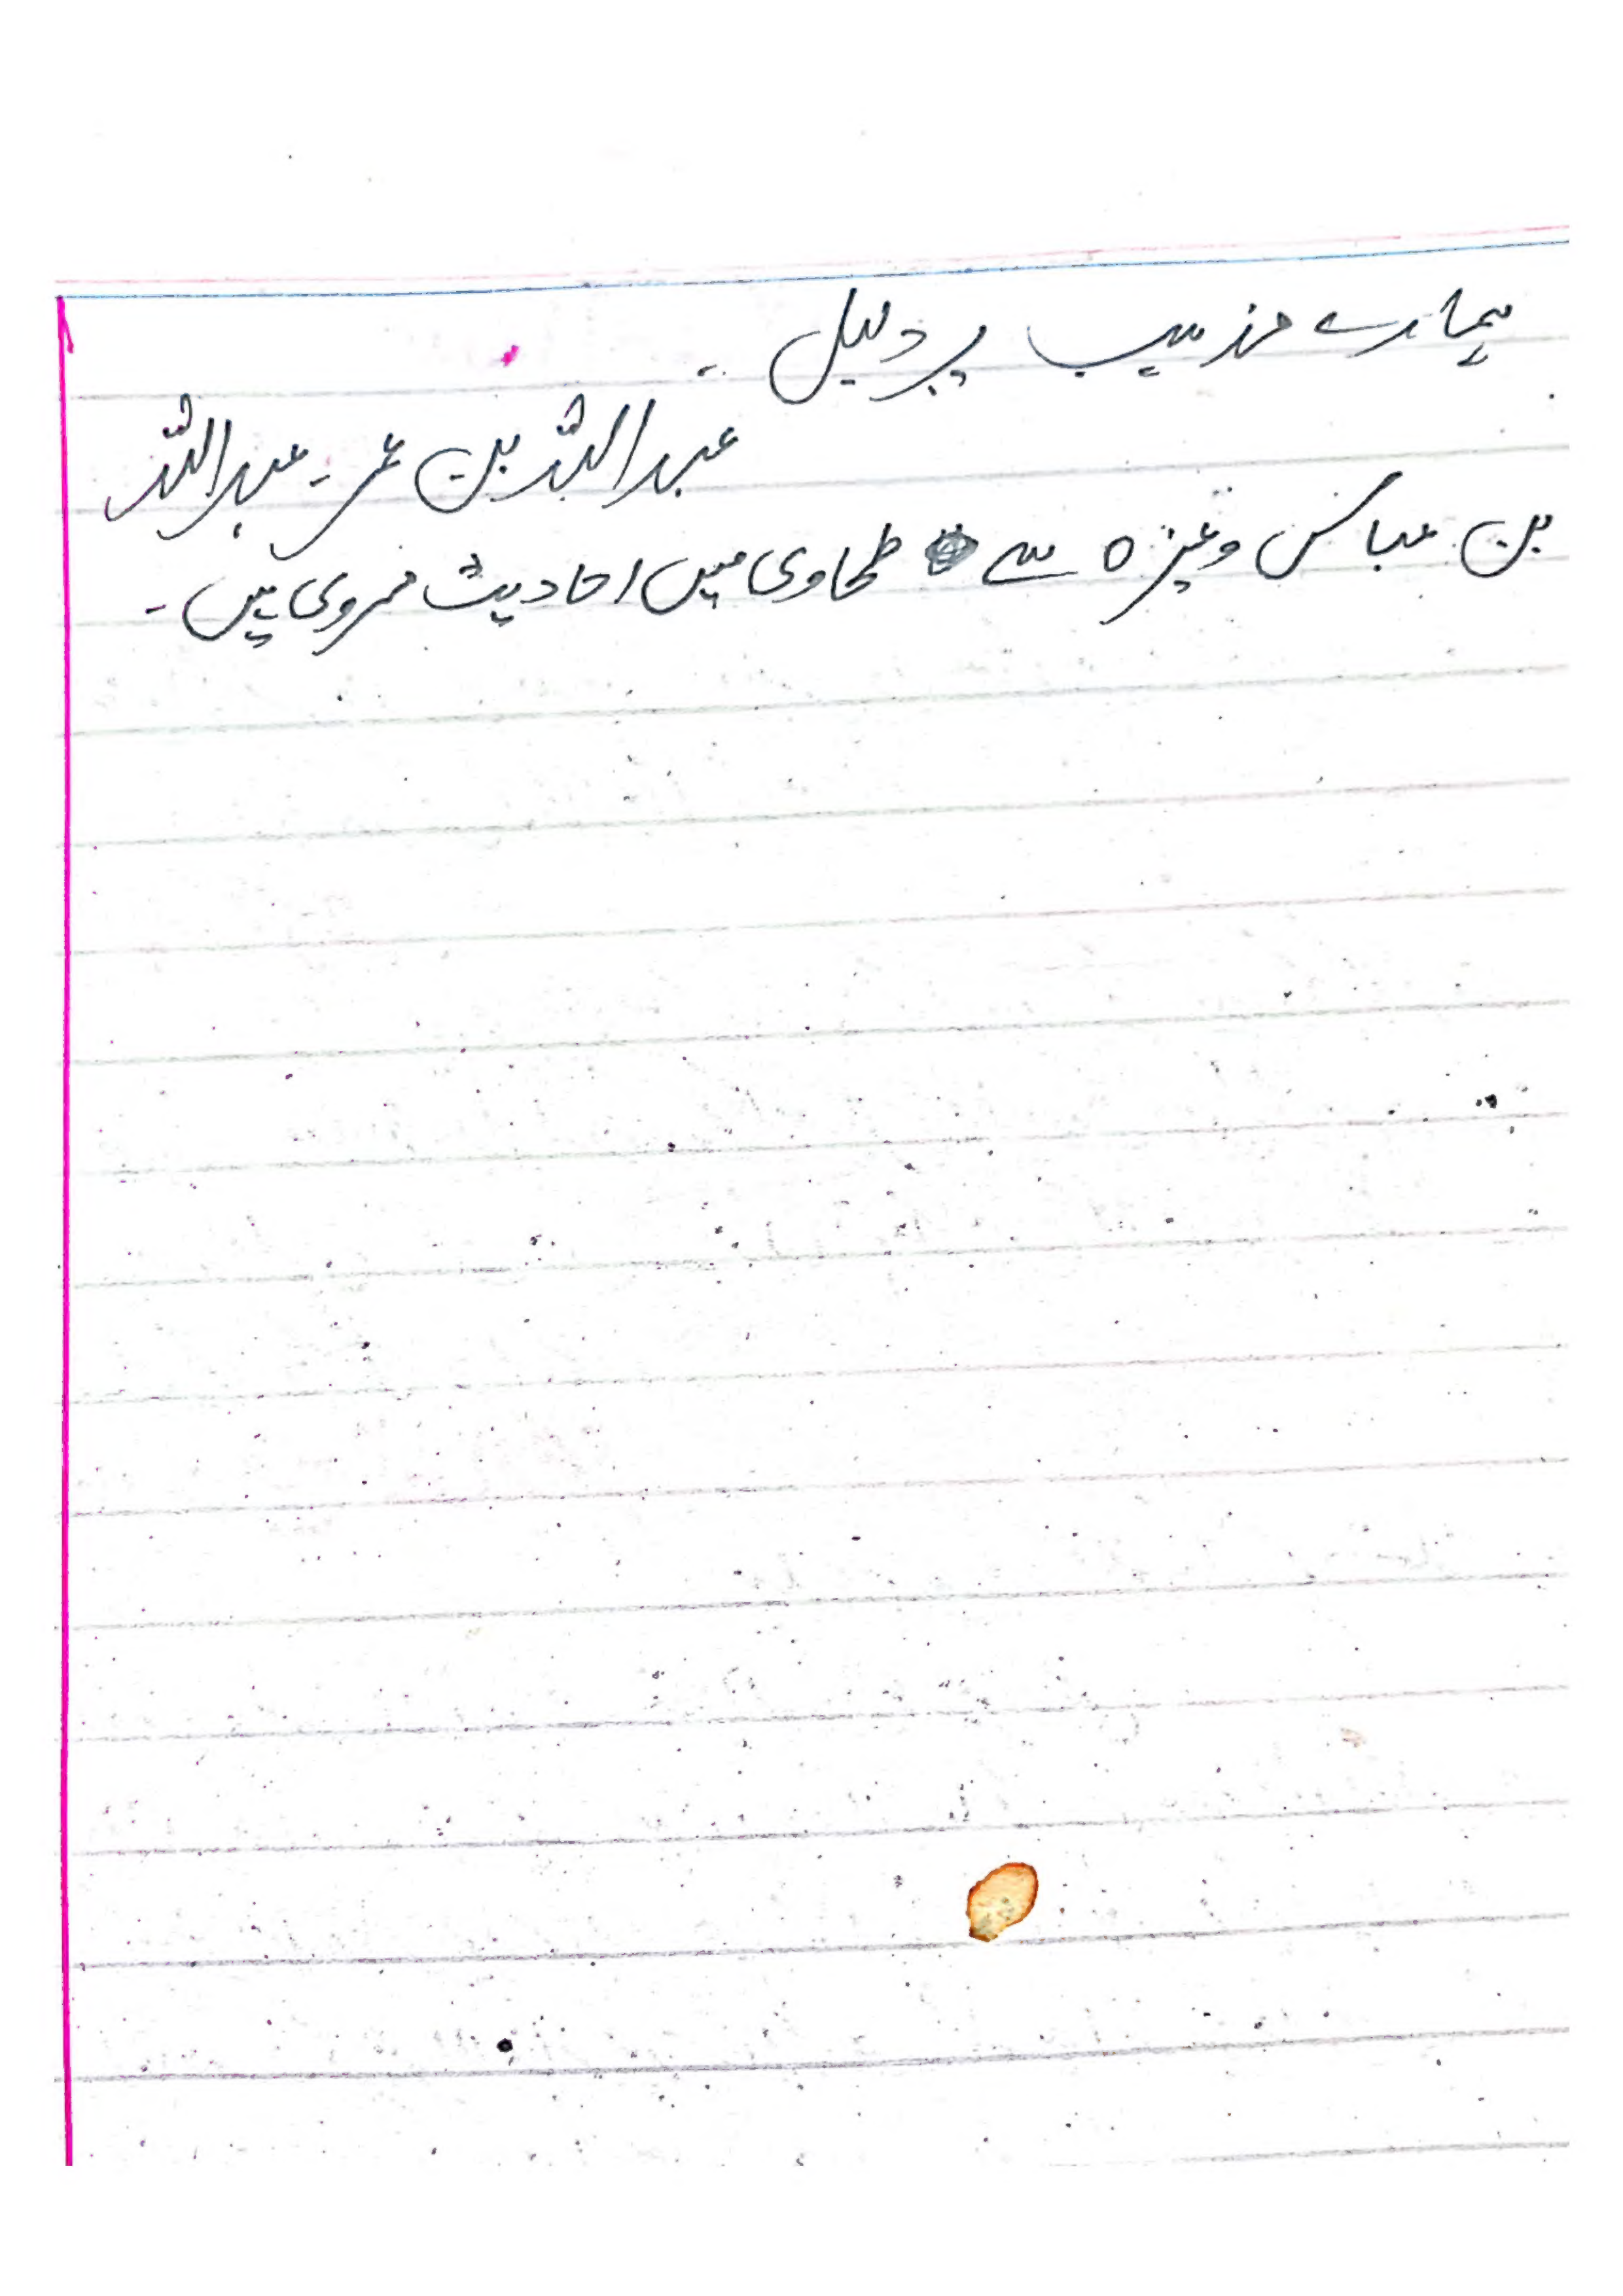 ہمارے مذہب پر دلیل ۔۔
عبداللہ بن عمر ۔ عبداللہ
بن عباس وغیرہ سے طحاوی میں احادیث مروی ہیں ۔